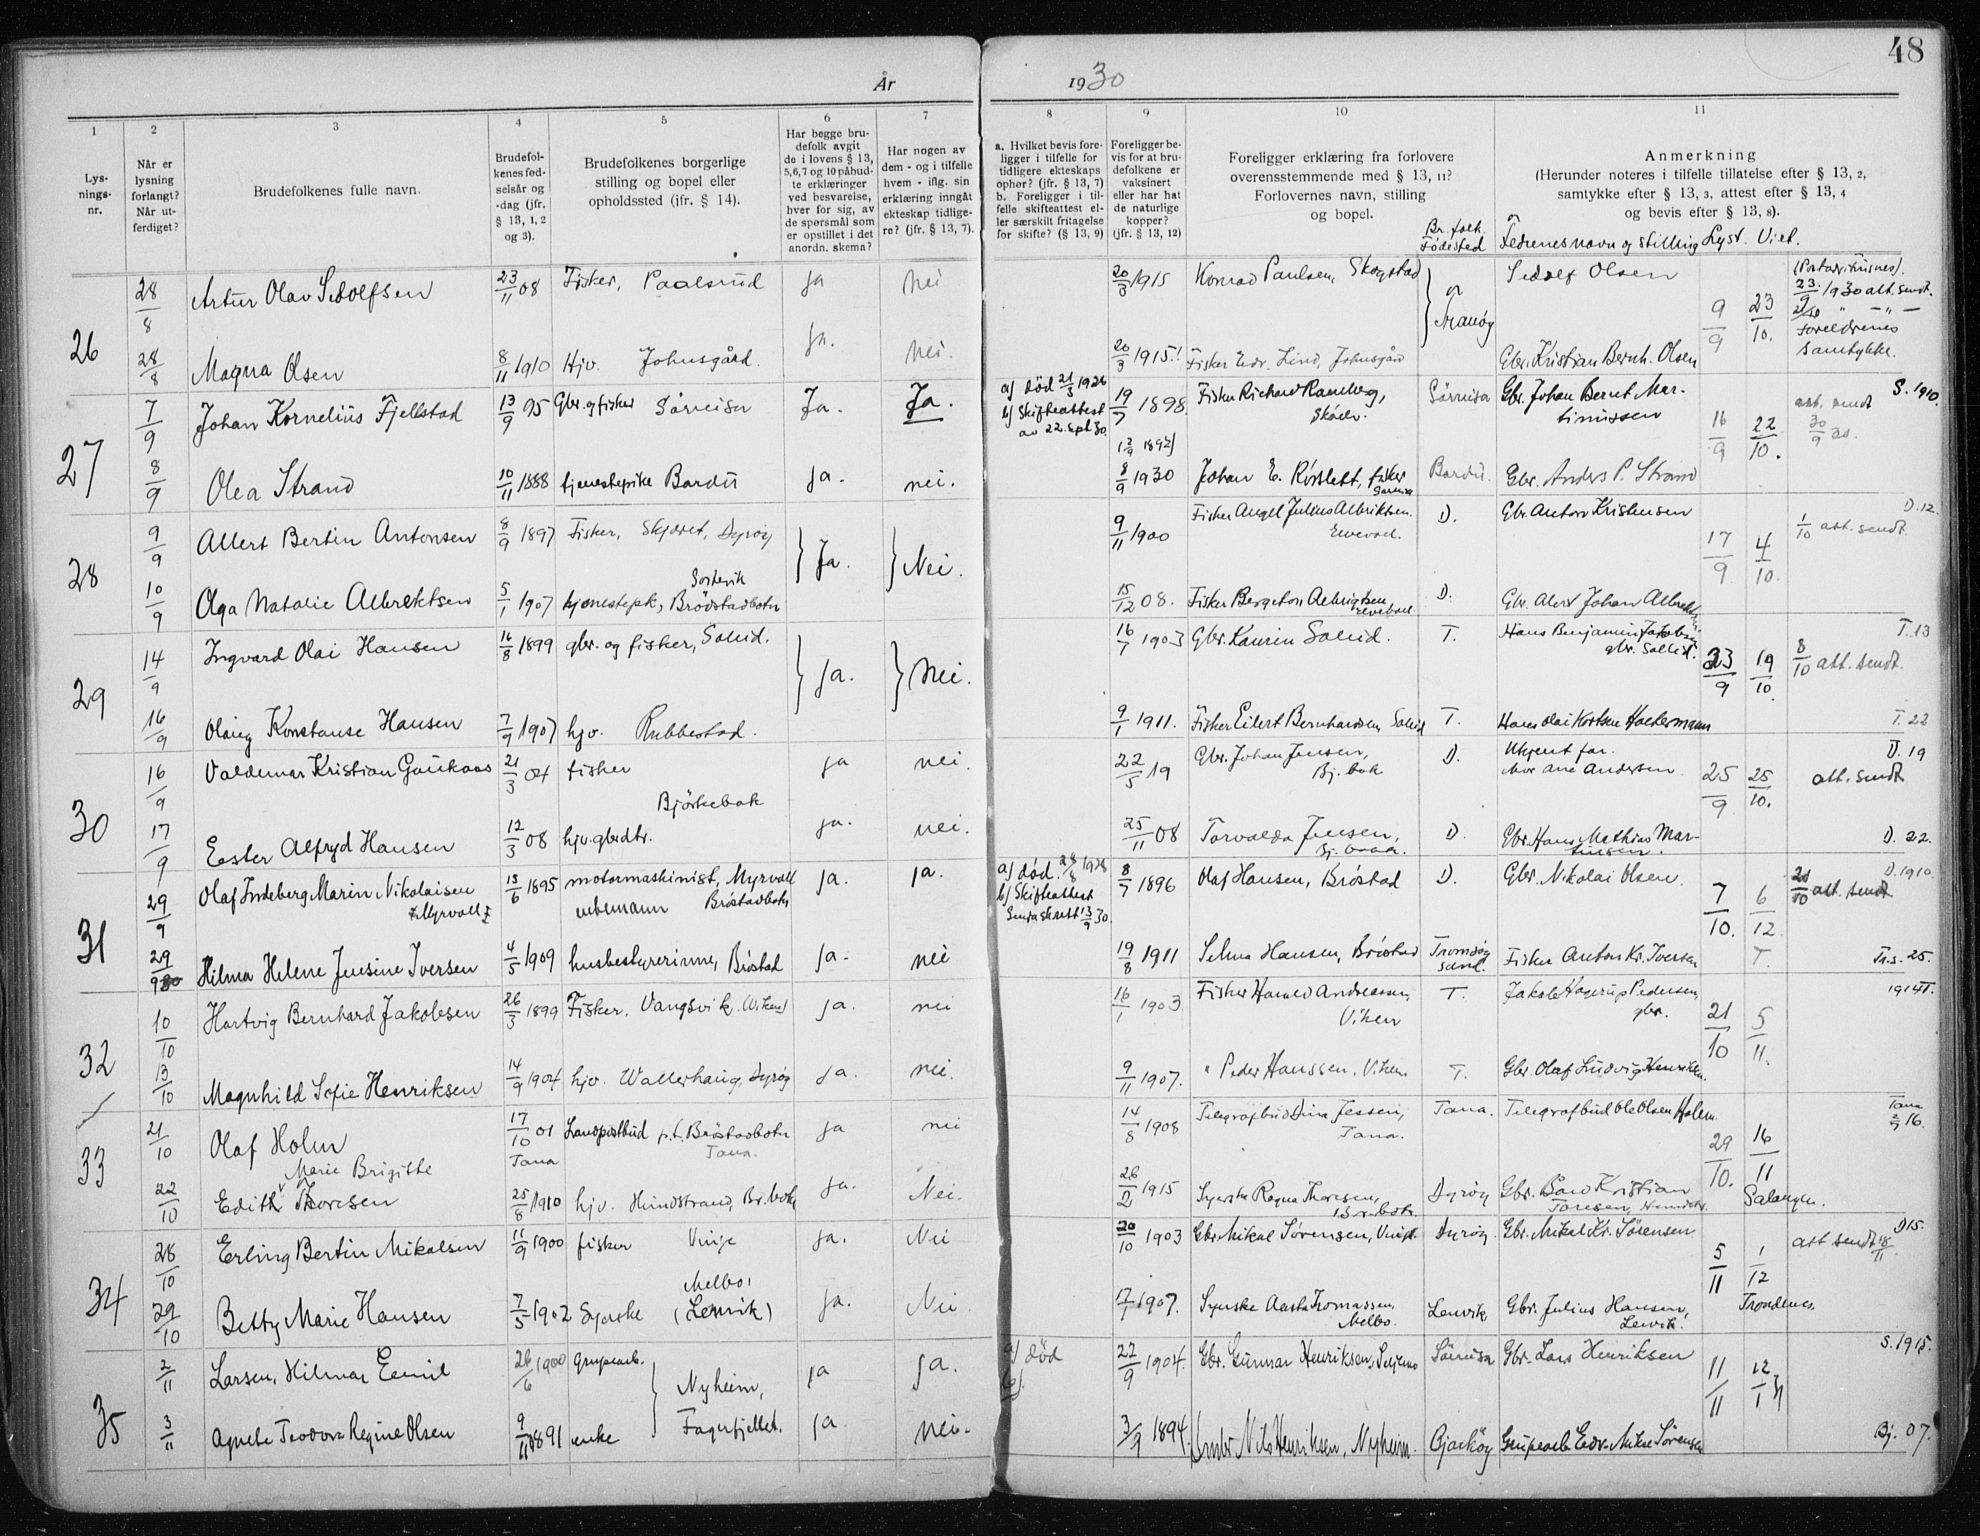 48
År 1930
1 2 3 4 5 6 7 8 9 10 11
Lys-
nings-
nr.
Når er
lysning
forlangt?
Når ut-
ferdiget?
Brudefolkenes fulle navn.
Brudefol-
kenes fød-
selsår og
-dag (jfr.
§ 13, 1, 2
og 3).
Brudefolkenes borgerlige
stilling og bopel eller
opholdssted (jfr. § 14).
Har begge bru-
defolk avgit
de i lovens § 13,
5, 6, 7 og 10 påbud-
te erklæringer
ved besvarelse,
hver for sig, av
de spørsmål som
er opstillet i det
anordn. skema?
Har nogen av
dem - og i tilfelle
hvem - iflg. sin
erklæring inngåt
ekteskap tidlige-
re? (jfr. § 13, 7).
a. Hvilket bevis fore-
ligger i tilfelle for
tidligere ekteskaps
ophør? (jfr. § 13, 7)
b. Foreligger i til-
felle skifteattest el-
ler særskilt fritagelse
for skifte? (§ 13, 9)
Foreligger be-
vis for at bru-
defolkene er
vaksinert
eller har hat
de naturlige
kopper?
(jfr. § 13, 12)
Foreligger erklæring fra forlovere
overensstemmende med § 13, 11?
Forlovernes navn, stilling
og bopel.
Br. folk.
Fødested
Anmerkning
(Herunder noteres i tilfelle tillatelse efter § 13, 2,
samtykke efter § 13, 3, attest efter § 13, 4
og bevis efter § 13, 8).
Fedrenes navn og stilling Lyst. Viet.
26 28/8 Artur Olav Sedolfsen 23/11 08 Fisker, Paalsrud ja nei 20/3 1915 Konrad Paulsen, Skogstad Tranøy Sedolf Olsen 9/9 23/10.
23/9 1930 att. sendt.
Foreldrenes
samtykke.
28/8 Magna Olsen 8/11 1910 Hjv. Johnsgård. ja. nei. 20/3 1915! Fisker Edv. Lind, Johnsgård Gbr. Kristian Bernh. Olsen
27 7/9 Johan Kornelius Fjellstad 13/9 95 Gbr. og fisker Sørreisa Ja. Ja. a) død 21/3 1926
b) Skifteattest
av 22. sept 30.
19/7 1898. Fisker Richard Ramberg, Sørreisa Gbr. Johan Bernt Mar-
tinussen 16/9 22/10. att. sendt 30/9 30. S. 1910.
8/9 Olea Strand 10/11 1888 tjenestepike Bardu ja. nei. 8/9 1930 Johan E. Rösslett, fisker Bardu. Gbr. Anders P. Strand
28 9/9 Allert Bertin Antonsen 8/9 1897 Fisker, Skjæret, Dyrøy Ja. Nei. 9/11 1900 Fisker Angel Julius Albriktsen. D. Gbr. Anton Kristensen 17/9. 4/10. 1/10 att. sendt. D. 12.
10/9 Olga Natalie Albrektsen 5/1 1907 tjenestepk., Brøstadbotn 15/12 08. Fisker Bergeton Albrigtsen D. Gbr. Alert Johan Albrektsen
29 14/9 Ingvard Olai Hansen 16/8 1899 gbr. og fisker, Solleid. Ja. Nei. 16/7 1903 Gbr. Kaurin Solleid. T. Hans Benjamin Jakobsen
gbr. Solleid. 23/9 19/10 8/10 att. sendt. T. 13
16/9 Olaug Konstanse Hansen 7/9 1907 hjv. Rubbestad. 9/1 1911. Fisker Eilert Bernhardsen, Solleid T. Hans Olai Kortsen Haldermann T. 22
30 16/9 Valdemar Kristian Gaukaas 21/3 04 fisker ja nei. 22/5 19 Gbr. Johan Jensen, D. Ukjent far.
Bjørkebak Bj. bak Mor Ane Andersen. 25/9 25/10. att. sendt D. 19
17/9 Ester Alfryd Hansen 12/3 08 hjv. gbrdtr. ja. nei. 25/11 08 Torvalda Jensen, D. Gbr. Hans Mathias Mar-
tinsen. D. 22.
31 29/9 Olaf Indeberg Marin Nikolaisen 13/6 1895 motormaskinist, Myrvoll ja. ja. a) død. 28/8 1928 8/7 1896 Olaf Hansen, Brøstad D. Gbr. Nikolai Olsen. 7/10. 6/12. att. sendt D. 1910.
Myrvoll enkemann Brøstadbotn b) Skifteattest
13/9 30.
29/9 Hilma Helene Jensine Iversen 4/5 1909 husbestyrerinne, Brøstad ja. nei 19/8 1911 Selma Hansen, Brøstad Tromsøy
sund. Fisker Anton Kr. Iversen T. Tr.s. 25.
32 10/10 Hartvig Bernhard Jakobsen 26/3 1899 Fisker, Vangsvik (Viken) ja. nei 16/1 1903 Fisker Harald Andreassen, T. Jakob Hagerup Pedersen,
Viken gbr. 21/10 5/11. 1914 T.
13/10 Magnhild Sofie Henriksen 14/9 1904 hjv. Wallerhaug, Dyrøy ja. nei. 9/11 1907. " Peder Hanssen, Viken T. Gbr. Olaf Ludvig Henriksen.
33 21/10 Olaf Holm 17/10 01 Landpostbud p.t. Brøstadbotn ja nei 14/8 1908 Telegrafbud Dina Jessen, Tana. Telegrafbud Ole Olsen Holm. Tana
Tana Tana. Tana. 29/10. 16/11 16.
Marie Brigitte
22/10 Edith Thoresen 25/8 1910 hjv. Hundstrand, Br. botn ja. Nei. 26/2 1915 Syerske Ragna Thoresen, Dyrøy Gbr. Bard Kristian Salangen.
Br. botn. Toresen, Hundstr.
34 28/10 Erling Bertin Mikalsen 11/9 1900 fisker Vinje ja. Nei 20/10 1903 Gbr. Mikal Sørensen, Vinje. Dyrøy. Gbr. Mikal Kr. Sørensen 5/11 1/12 att sendt 18/11. D 15.
Melbo,
29/10 Betty Marie Hansen 7/5 1902 Syerske (Lenvik) ja. Nei 17/7 1907. Syerske Aasta Tomassen, Lenvik Gbr. Julius Hansen, Trondenes.
Melbo. Lenvik.
35 2/11 Larsen, Hilmar Eemil 26/6 1900 Grupearb. ja ja. a) død
b). 22/9 1904. Gbr. Gunnar Henriksen, Sørreisa Gbr. Lars Henriksen 11/11 12/1 31 S. 1915.
Nyheim,
Fagerfjellet.
3/11 Agnete Teodora Regine Olsen 9/11 1891 enke ja. nei. 3/9 1894. Nils Henriksen, Nyheim. Bjarkøy Grupearb. Edv. Mikal Sørensen Bj. 07.